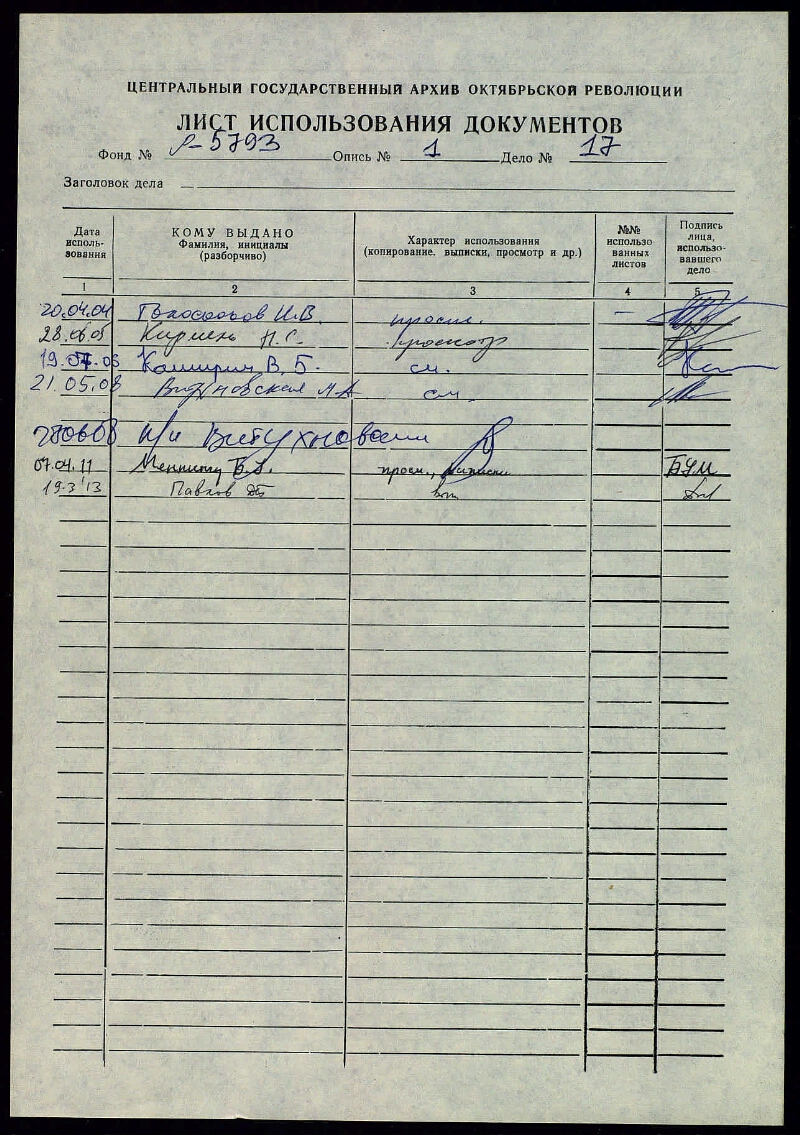 ЦЕНТРАЛЬНЫЙ ГОСУДАРСТВЕННЫЙ АРХИВ ОКТЯБРЬСКОЙ РЕВОЛЮЦИИ
ЛИСТ ИСПОЛЬЗОВАНИЯ ДОКУМЕНТОВ
Фонд № Р-5793 Опись № 1 Дело № 17
Заголовок дела
Дата исполь-зования
КОМУ ВЫДАНО
Фамилия, инициалы
(разборчиво)
Характер использования
(копирование, выписки, просмотр и др.)
№№ использо ванных листов
Подпись лица, использо-вавшего дело
1 2 3 4 5
20.04.04 И.В. просм. —
28.06.05 Н.С. просмотр
19. .06 Каширин В.Б. см.
21.05.08 см.
280608
07.04.11 Б.А. просм., выписки
19-3'13 Павлов